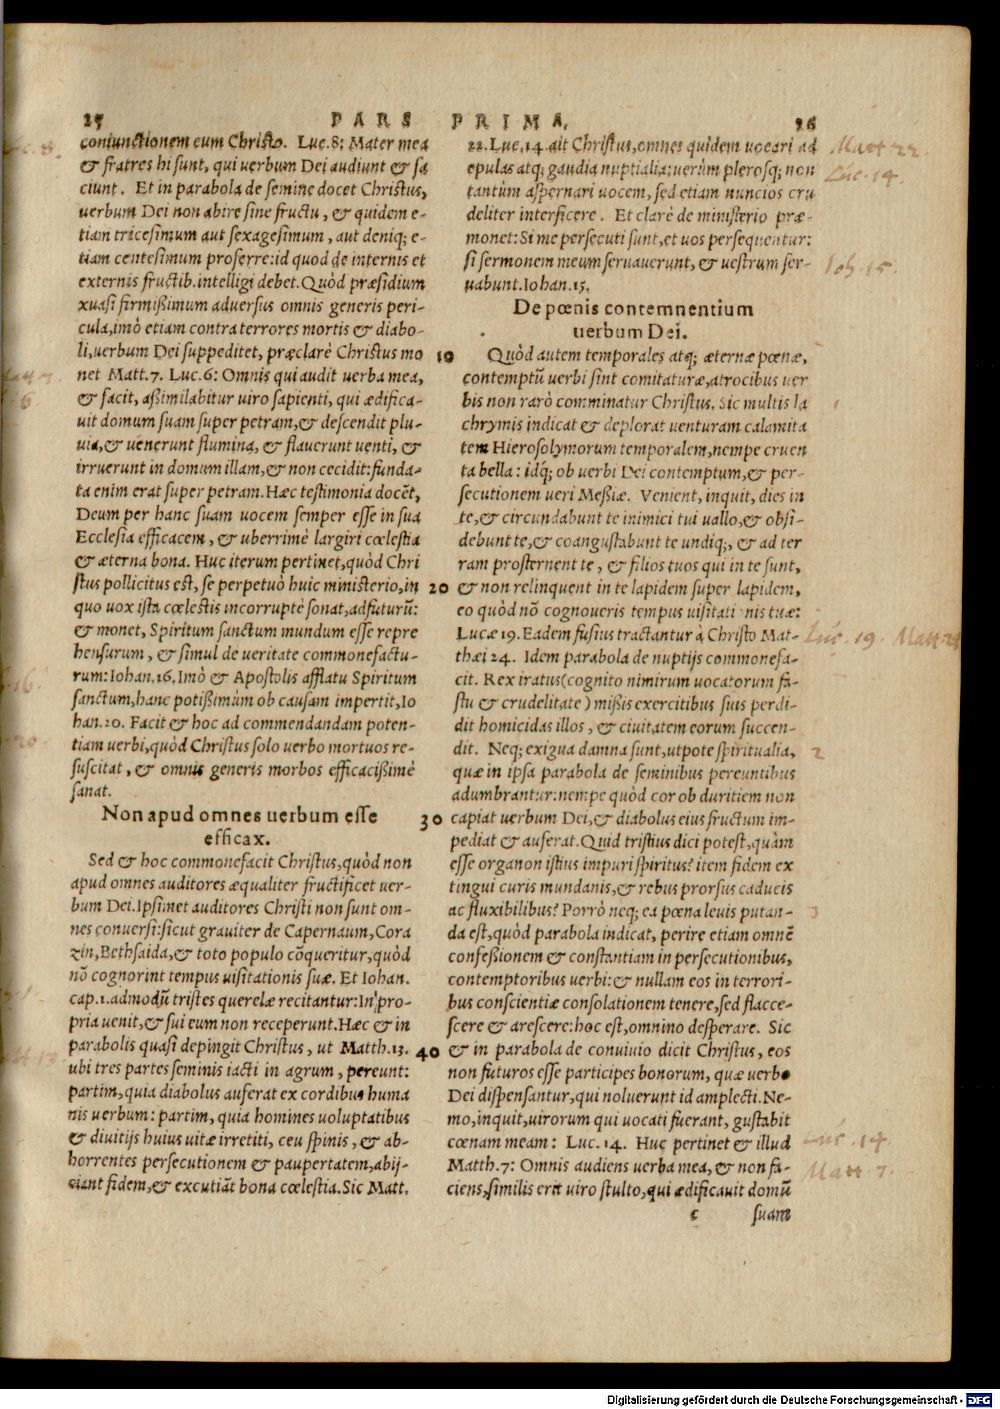 25 PARS
coniunctionem eum Christo. Luc. 8: Mater mea
& fratres hi sunt, qui uerbum Dei audiunt & fa
ciunt. Et in parabola de semine docet Christus,
uerbum Dei non abire sine fructu, & quidem e-
tiam tricesimum aut sexagesimum, aut deniq; e-
tiam centesimum proferre: id quod de internis et
externis fructib. intelligi debet. Quòd præsidium
quasi firmißimum aduersus omnis generis peri-
cula, imò etiam contra terrores mortis & diabo-
li, uerbum Dei suppeditet, præclarè Christus mo
net Matt. 7. Luc. 6: Omnis qui audit uerba mea,
& facit, aßimilabitur uiro sapienti, qui ædifica-
uit domum suam super petram, & descendit plu-
uia, & uenerunt flumina, & flauerunt uenti, &
irruerunt in domum illam, & non cecidit: funda-
ta enim erat super petram. Hæc testimonia docēt,
Deum per hanc suam uocem semper esse in sua
Ecclesia efficacem, & uberrimè largiri cœlestia
& æterna bona. Huc iterum pertinet, quòd Chri
stus pollicitus est, se perpetuò huic ministerio, in
quo uox ista cœlestis incorruptè sonat, adfuturū:
& monet, Spiritum sanctum mundum esse repre
hensurum, & simul de ueritate commonefactu-
rum: Iohan. 16. Imò & Apostolis afflatu Spiritum
sanctum, hanc potißimùm ob causam impertit, Io
han. 20. Facit & hoc ad commendandam poten-
tiam uerbi, quòd Christus solo uerbo mortuos re-
suscitat, & omnis generis morbos efficacißimè
sanat.
Non apud omnes uerbum esse
efficax.
Sed & hoc commonefacit Christus, quòd non
apud omnes auditores æqualiter fructificet uer-
bum Dei. Ipsimet auditores Christi non sunt om-
nes conuersi: sicut grauiter de Capernaum, Cora
zin, Bethsaida, & toto populo cōqueritur, quòd
nō cognorint tempus uisitationis suæ. Et Iohan.
cap. 1. admodū tristes querelæ recitantur: In pro-
pria uenit, & sui eum non receperunt. Hæc & in
parabolis quasi depingit Christus, ut Matth. 13.
ubi tres partes seminis iacti in agrum, pereunt:
partim, quia diabolus auferat ex cordibus huma
nis uerbum: partim, quia homines uoluptatibus
& diuitijs huius uitæ irretiti, ceu spinis, & ab-
horrentes persecutionem & paupertatem, abij-
ciant fidem, & excutiāt bona cœlestia. Sic Matt.
10
20
30
40
PRIMA. 26
22. Luc. 14. ait Christus, omnes quidem uocari ad
epulas atq; gaudia nuptialia: uerùm plerosq; non
tantùm aspernari uocem, sed etiam nuncios cru
deliter interficere. Et clarè de ministerio præ-
monet: Si me persecuti sunt, et uos persequentur:
si sermonem meum seruauerunt, & uestrum ser-
uabunt. Iohan. 15.
De pœnis contemnentium
uerbum Dei.
Quòd autem temporales atq; æternæ pœnæ,
contemptū uerbi sint comitaturæ, atrocibus uer
bis non rarò comminatur Christus. Sic multis la
chrymis indicat & deplorat uenturam calamita
tem Hierosolymorum temporalem, nempe cruen
ta bella: idq; ob uerbi Dei contemptum, & per-
secutionem ueri Meßiæ. Venient, inquit, dies in
te, & circundabunt te inimici tui uallo, & obsi-
debunt te, & coangustabunt te undiq;, & ad ter
ram prosternent te, & filios tuos qui in te sunt,
& non relinquent in te lapidem super lapidem,
eo quòd nō cognoueris tempus uisitationis tuæ:
Lucæ 19. Eadem fusius tractantur à Christo Mat-
thæi 24. Idem parabola de nuptijs commonefa-
cit. Rex iratus (cognito nimirum uocatorum fa-
stu & crudelitate) mißis exercitibus suis perdi-
dit homicidas illos, & ciuitatem eorum succen-
dit. Neq; exigua damna sunt, utpote spiritualia,
quæ in ipsa parabola de seminibus pereuntibus
adumbrantur: nempe quòd cor ob duritiem non
capiat uerbum Dei, & diabolus eius fructum im-
pediat & auferat. Quid tristius dici potest, quàm
esse organon istius impuri spiritus? item fidem ex
tingui curis mundanis, & rebus prorsus caducis
ac fluxibilibus? Porrò neq; ea pœna leuis putan-
da est, quòd parabola indicat, perire etiam omnē
confeßionem & constantiam in persecutionibus,
contemptoribus uerbi: & nullam eos in terrori-
bus conscientiæ consolationem tenere, sed flacce-
scere & arescere: hoc est, omnino desperare. Sic
& in parabola de conuiuio dicit Christus, eos
non futuros esse participes bonorum, quæ uerbo
Dei dispensantur, qui noluerunt id amplecti. Ne-
mo, inquit, uirorum qui uocati fuerant, gustabit
cœnam meam: Luc. 14. Huc pertinet & illud
Matth. 7: Omnis audiens uerba mea, & non fa-
ciens, similis erit uiro stulto, qui ædificauit domū
c suam
Matt 22.
Luc. 14.
Joh. 15.
1
Luc. 19. Matt 24
2
3
Luc. 14.
Matt. 7.
Digitalisierung gefördert durch die Deutsche Forschungsgemeinschaft - DFG